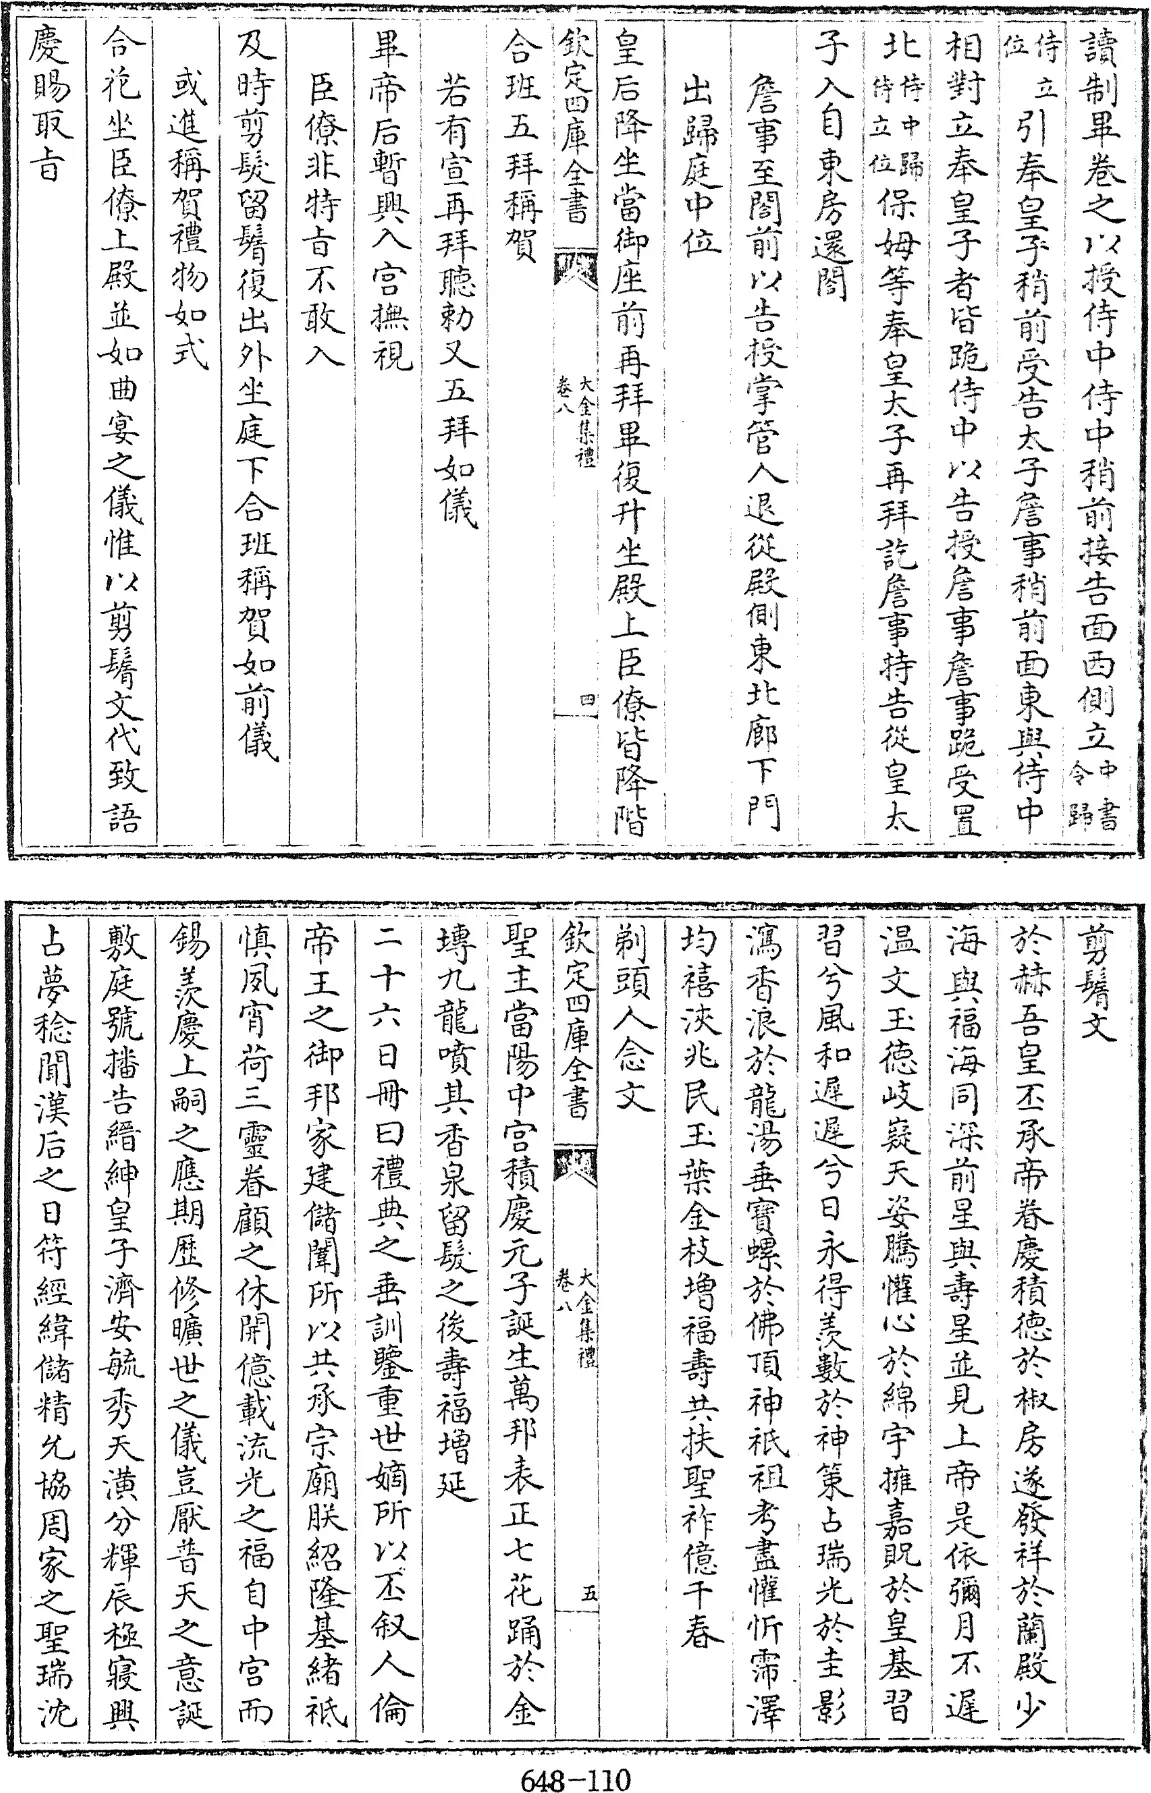 讀制畢卷之以授侍中侍中稍前接告面西側立中書令歸
侍立位引奉皇子稍前受告太子詹事稍前面東與侍中
相對立奉皇子者皆跪侍中以告授詹事詹事跪受置
北侍中歸侍立位保姆等奉皇太子再拜訖詹事持告從皇太
子入自東房還閤
詹事至閤前以告授掌管人退從殿側東北廊下門
出歸庭中位
皇后降坐當御座前再拜畢復升坐殿上臣僚皆降階
欽定四庫全書
大金集禮
卷八
四
合班五拜稱賀
若有宣再拜聽勅又五拜如儀
畢帝后暫興入宮撫視
臣僚非特旨不敢入
及時剪髮留鬌復出外坐庭下合班稱賀如前儀
或進稱賀禮物如式
合花坐臣僚上殿並如曲宴之儀惟以剪鬌文代致語
慶賜取旨
剪鬌文
於赫吾皇丕承帝眷慶積德於椒房遂發祥於蘭殿少
海與福海同深前星與壽星並見上帝是依彌月不遲
温文玉德岐嶷天姿騰懽心於綿宇擁嘉貺於皇基習
習兮風和遲遲兮日永得羡數於神策占瑞光於圭影
瀉香浪於龍湯垂寶螺於佛頂神祇祖考盡懽忻霈澤
均禧浹兆民玉葉金枝增福壽共扶聖祚億千春
剃頭人念文
欽定四庫全書
大金集禮
卷八
五
聖主當陽中宮積慶元子誕生萬邦表正七花踊於金
塼九龍噴其香泉留髮之後壽福增延
二十六日冊曰禮典之垂訓鑒重世嫡所以丕叙人倫
帝王之御邦家建儲闈所以共承宗廟朕紹隆基緒祗
慎夙宵荷三靈眷顧之休開億載流光之福自中宮而
錫羡慶上嗣之應期歷修曠世之儀豈厭普天之意誕
敷庭號播告縉紳皇子濟安毓秀天潢分輝辰極寢興
占夢稔聞漢后之日符經緯儲精允協周家之聖瑞沈
648-110